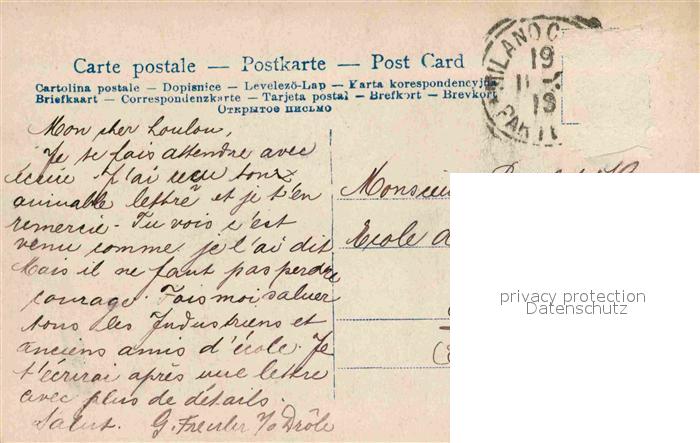 Carte postale — Postkarte — Post Card
Cartolina postale — Dopisnice — Levelező-Lap — Karta korespondencyjna
Briefkaart — Correspondenzkarte — Tarjeta postal — Brefkort — Brevkort
Открытое письмо
MILANO C
19
11
19
PART
Mon cher Loulou,
Je te fais attendre avec
écrire J'ai reçu ton
aimable lettre et je t'en
remercie. Tu vois c'est
venu comme je l'ai dit
Mais il ne faut pas perdre
courage. Fais moi saluer
tous les Industriens et
anciens amis d'école. Je
t'écrirai après une lettre
avec plus de détails.
Salut. G.
Drôle
Monsieur
Ecole
privacy protection
Datenschutz